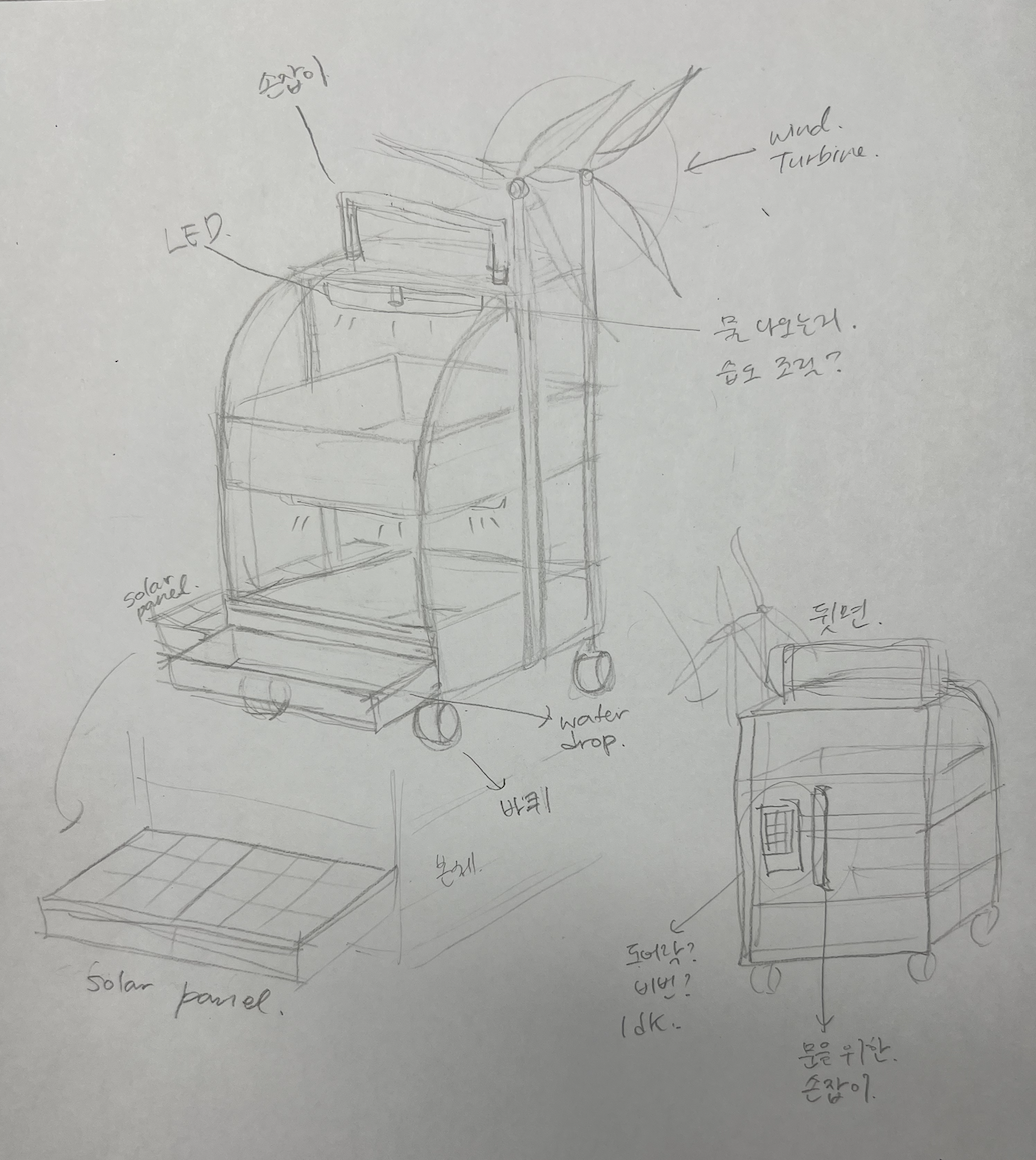 손잡이
wind.
Turbine.
LED.
물 나오는거.
습도 조절?
solar
panel.
뒷면.
water
drop.
바퀴
본체.
solar panel.
도어락?
비번?
idk..
문을 위한.
손잡이.